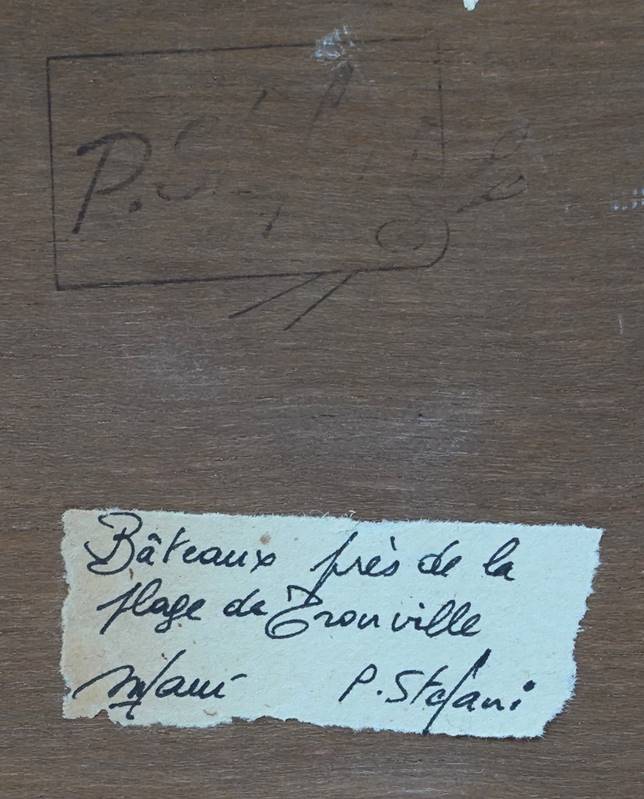 P. St
Bâteaux près de la
plage de Trouville
P. Stefani